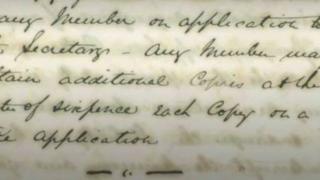 any Member on application to
Secretary - Any Member ma
tain additional Copies at the
te of sixpence Each Copy on a
application